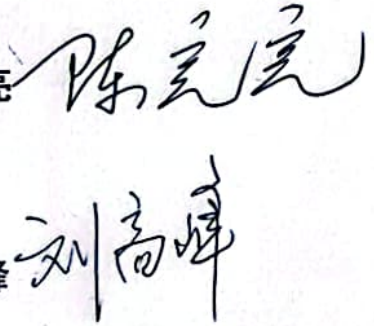 亮 陈亮亮
刘高峰